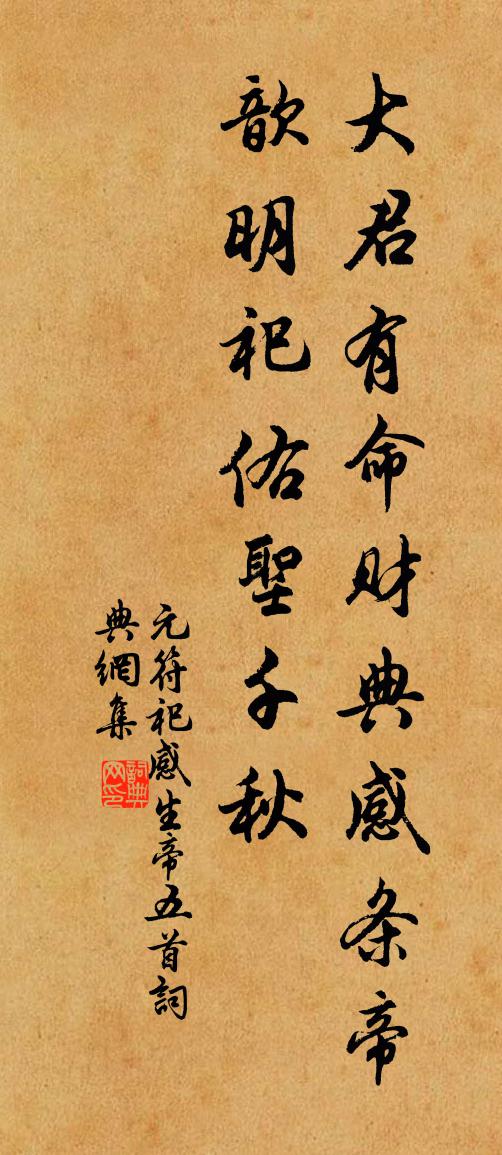 大君有命财典感条帝
歆明祀佑聖千秋
元符祀感生帝五首詞
典網集
詞典網印